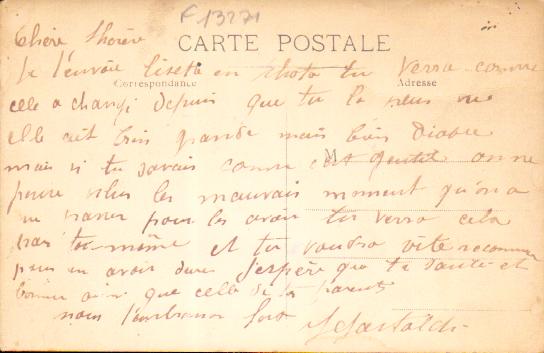 F 13271
CARTE POSTALE
Correspondance
Adresse
M
Chère Thérère
Je t'envoie lisette en photo tu verra comme
celle a changé depuis que tu la plus vue
elle est bien grande mais bien
mais si tu savais comme c'est gentil on ne
pense plus les mauvais moment qu'on a
pour les avoir tu verra cela
par toi-même et tu voudra vite recommen
pour en avoir deux J'espère que ta santé et
bonne ainsi que celle de tes parents
nous t'embrasson fort